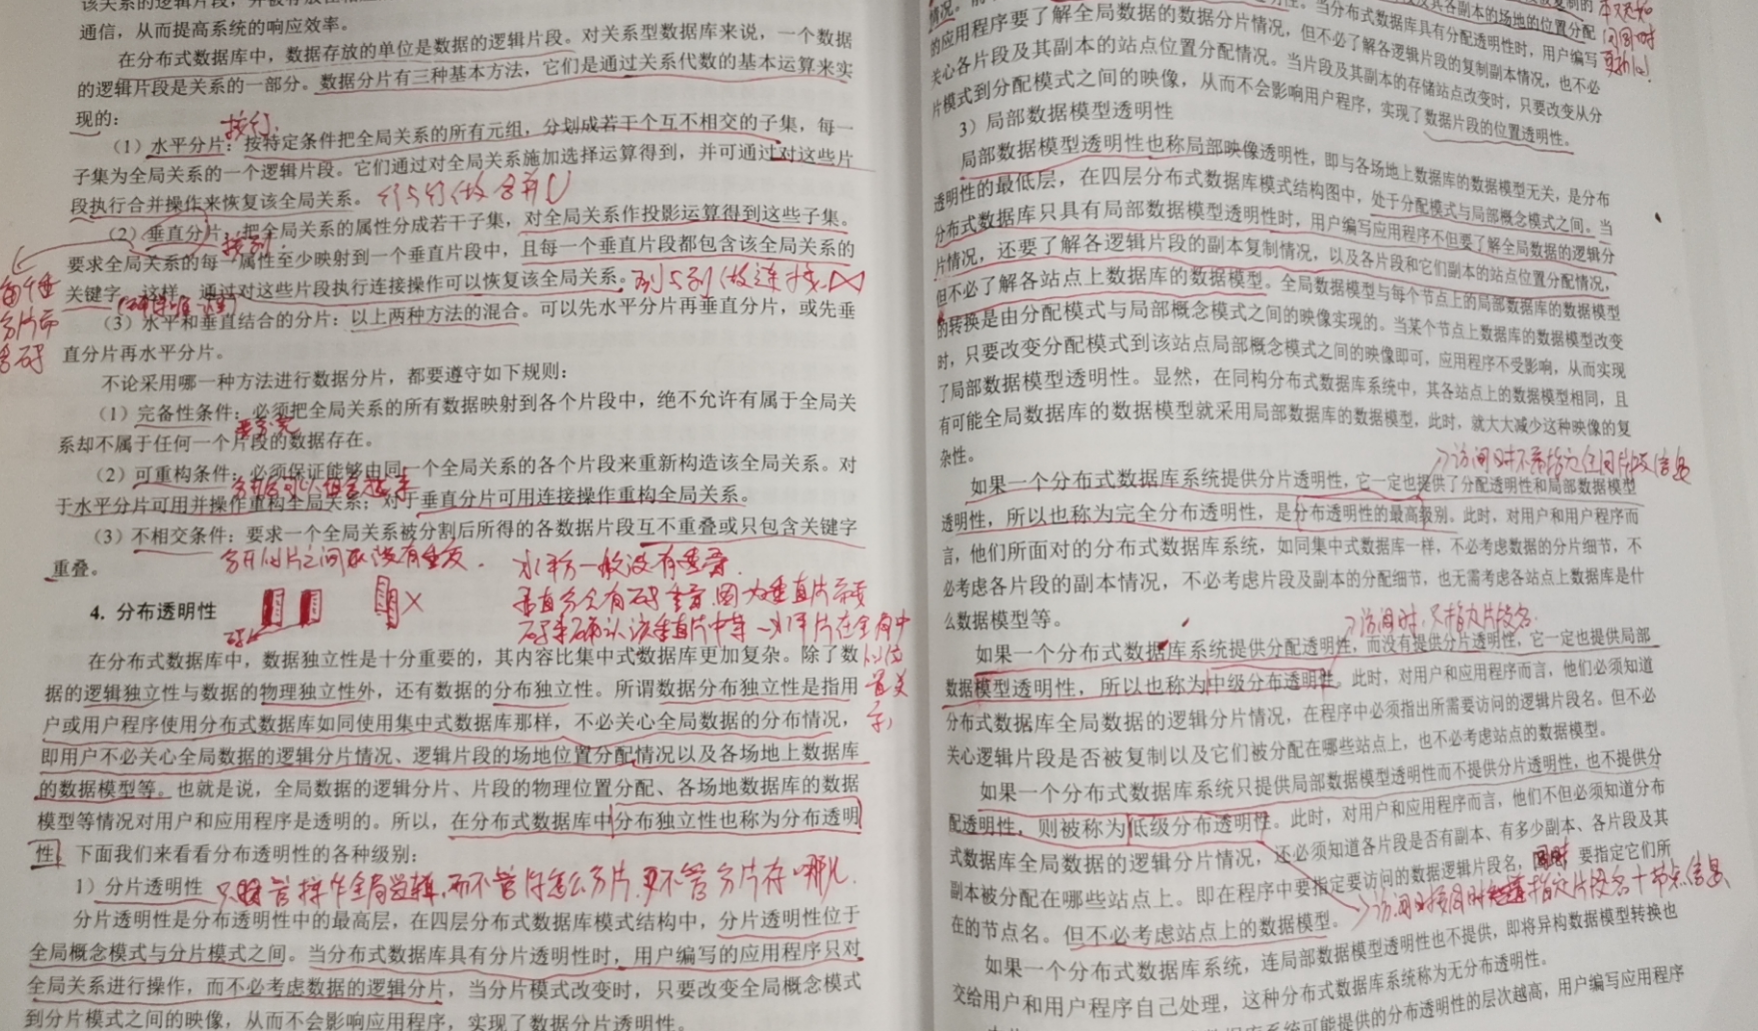 通信，从而提高系统的响应效率。
在分布式数据库中，数据存放的单位是数据的逻辑片段。对关系型数据库来说，一个数据
的逻辑片段是关系的一部分。数据分片有三种基本方法，它们是通过关系代数的基本运算来实
现的：
按行.
（1）水平分片：按特定条件把全局关系的所有元组，分划成若干个互不相交的子集，每一
子集为全局关系的一个逻辑片段。它们通过对全局关系施加选择运算得到，并可通过对这些片
段执行合并操作来恢复该全局关系。 行与行做合并∪
（2）垂直分片：把全局关系的属性分成若干子集，对全局关系作投影运算得到这些子集。
按列.
要求全局关系的每一属性至少映射到一个垂直片段中，且每一个垂直片段都包含该全局关系的
关键字。这样，通过对这些片段执行连接操作可以恢复该全局关系。列与列做连接.⋈
（3）水平和垂直结合的分片：以上两种方法的混合。可以先水平分片再垂直分片，或先垂
直分片再水平分片。
不论采用哪一种方法进行数据分片，都要遵守如下规则：
（1）完备性条件：必须把全局关系的所有数据映射到各个片段中，绝不允许有属于全局关
系却不属于任何一个片段的数据存在。
（2）可重构条件：必须保证能够由同一个全局关系的各个片段来重新构造该全局关系。对
于水平分片可用并操作重构全局关系；对于垂直分片可用连接操作重构全局关系。
（3）不相交条件：要求一个全局关系被分割后所得的各数据片段互不重叠或只包含关键字
重叠。
水平分一般没有重叠.
4. 分布透明性
在分布式数据库中，数据独立性是十分重要的，其内容比集中式数据库更加复杂。除了数
据的逻辑独立性与数据的物理独立性外，还有数据的分布独立性。所谓数据分布独立性是指用
户或用户程序使用分布式数据库如同使用集中式数据库那样，不必关心全局数据的分布情况，
即用户不必关心全局数据的逻辑分片情况、逻辑片段的场地位置分配情况以及各场地上数据库
的数据模型等。也就是说，全局数据的逻辑分片、片段的物理位置分配、各场地数据库的数据
模型等情况对用户和应用程序是透明的。所以，在分布式数据库中分布独立性也称为分布透明
性。下面我们来看看分布透明性的各种级别：
1）分片透明性
分片透明性是分布透明性中的最高层，在四层分布式数据库模式结构中，分片透明性位于
全局概念模式与分片模式之间。当分布式数据库具有分片透明性时，用户编写的应用程序只对
全局关系进行操作，而不必考虑数据的逻辑分片，当分片模式改变时，只要改变全局概念模式
到分片模式之间的映像，从而不会影响应用程序，实现了数据分片透明性。
当分布式数据库具有分配透明性时，用户编写
的应用程序要了解全局数据的数据分片情况，但不必了解各逻辑片段的复制副本情况，也不必
关心各片段及其副本的站点位置分配情况。当片段及其副本的存储站点改变时，只要改变从分
片模式到分配模式之间的映像，从而不会影响用户程序，实现了数据片段的位置透明性。
3）局部数据模型透明性
局部数据模型透明性也称局部映像透明性，即与各场地上数据库的数据模型无关，是分布
透明性的最低层，在四层分布式数据库模式结构图中，处于分配模式与局部概念模式之间。当
分布式数据库只具有局部数据模型透明性时，用户编写应用程序不但要了解全局数据的逻辑分
片情况，还要了解各逻辑片段的副本复制情况，以及各片段和它们副本的站点位置分配情况，
但不必了解各站点上数据库的数据模型。全局数据模型与每个节点上的局部数据库的数据模型
的转换是由分配模式与局部概念模式之间的映像实现的。当某个节点上数据库的数据模型改变
时，只要改变分配模式到该站点局部概念模式之间的映像即可，应用程序不受影响，从而实现
了局部数据模型透明性。显然，在同构分布式数据库系统中，其各站点上的数据模型相同，且
有可能全局数据库的数据模型就采用局部数据库的数据模型，此时，就大大减少这种映像的复
杂性。
如果一个分布式数据库系统提供分片透明性，它一定也提供了分配透明性和局部数据模型
透明性，所以也称为完全分布透明性，是分布透明性的最高级别。此时，对用户和用户程序而
言，他们所面对的分布式数据库系统，如同集中式数据库一样，不必考虑数据的分片细节，不
必考虑各片段的副本情况，不必考虑片段及副本的分配细节，也无需考虑各站点上数据库是什
么数据模型等。
访问时，只指定片段名.
如果一个分布式数据库系统提供分配透明性，而没有提供分片透明性，它一定也提供局部
数据模型透明性，所以也称为中级分布透明性。此时，对用户和应用程序而言，他们必须知道
分布式数据库全局数据的逻辑分片情况，在程序中必须指出所需要访问的逻辑片段名。但不必
关心逻辑片段是否被复制以及它们被分配在哪些站点上，也不必考虑站点的数据模型。
如果一个分布式数据库系统只提供局部数据模型透明性而不提供分片透明性，也不提供分
配透明性，则被称为低级分布透明性。此时，对用户和应用程序而言，他们不但必须知道分布
式数据库全局数据的逻辑分片情况，还必须知道各片段是否有副本、有多少副本、各片段及其
副本被分配在哪些站点上。即在程序中要指定要访问的数据逻辑片段名，同时要指定它们所
在的节点名。但不必考虑站点上的数据模型。
如果一个分布式数据库系统，连局部数据模型透明性也不提供，即将异构数据模型转换也
交给用户和用户程序自己处理，这种分布式数据库系统称为无分布透明性。
数据库系统可能提供的分布透明性的层次越高，用户编写应用程序